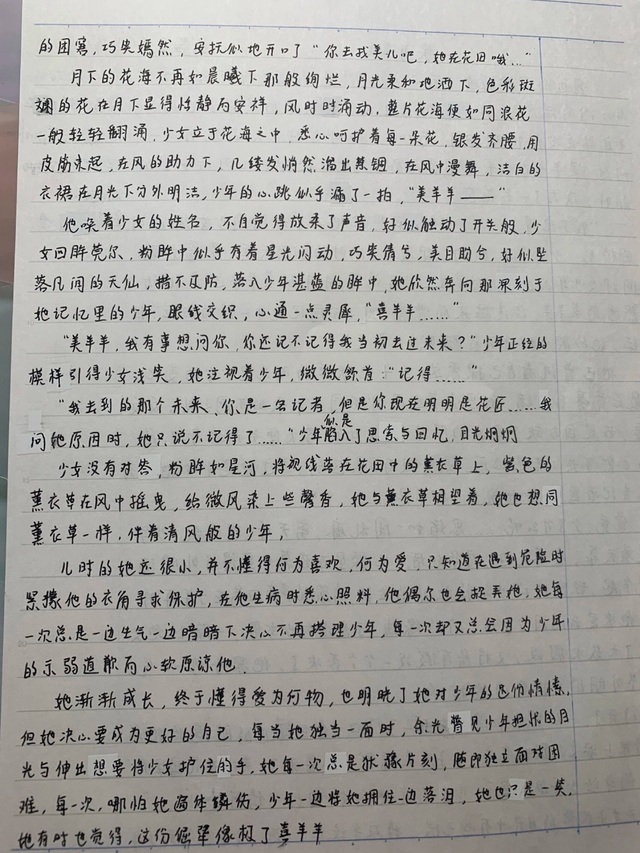 的困窘，巧笑嫣然，安抚似地开口了“你去找美儿吧，她在花田哦…”
月下的花海不再如晨曦下那般绚烂，月光柔和地洒下，色彩斑
斓的花在月下显得恬静而安祥，风时时涌动，整片花海便如同浪花
一般轻轻翻涌，少女立于花海之中，悉心呵护着每一朵花，银发齐腰，用
皮筋束起，在风的助力下，几缕发悄然溜出禁锢，在风中漫舞，洁白的
衣裙在月光下分外明洁，少年的心跳似乎漏了一拍，“美羊羊——”
他唤着少女的姓名，不自觉得放柔了声音，好似触动了开关般，少
女回眸莞尔，粉眸中似乎有着星光闪动，巧笑倩兮，美目盼兮，好似坠
落凡间的天仙，措不及防，落入少年湛蓝的眸中，她欣然奔向那深刻于
她记忆里的少年，眼线交织，心通一点灵犀，“喜羊羊……”
“美羊羊，我有事想问你，你还记不记得我当初去过未来？”少年正经的
模样引得少女浅笑，她注视着少年，微微颔首：“记得……”
“我去到的那个未来，你是一名记者，但是你现在明明是花匠……我
问她原因时，她只说不记得了……”少年似是陷入了思索与回忆，目光炯炯
少女没有对答，粉眸如星河，将视线落在花田中的薰衣草上，紫色的
薰衣草在风中摇曳，给微风染上些馨香，她与薰衣草相望着，她也想同
薰衣草一样，伴着清风般的少年，
儿时的她还很小，并不懂得何为喜欢，何为爱，只知道在遇到危险时
紧攥他的衣角寻求保护，在他生病时悉心照料，他偶尔也会捉弄她，她每
一次总是一边生气一边暗暗下决心不再搭理少年，每一次却又总会因为少年
的示弱道歉而心软原谅他．
她渐渐成长，终于懂得爱为何物，也明晓了她对少年的这份情愫，
但她决心要成为更好的自己，每当她独当一面时，余光瞥见少年担忧的目
光与伸出想要将少女护住的手，她每一次总是犹豫片刻，随即独立面对困
难，每一次，哪怕她遍体鳞伤，少年一边将她拥住一边落泪，她也只是一笑，
她有时也觉得，这份倔犟像极了喜羊羊